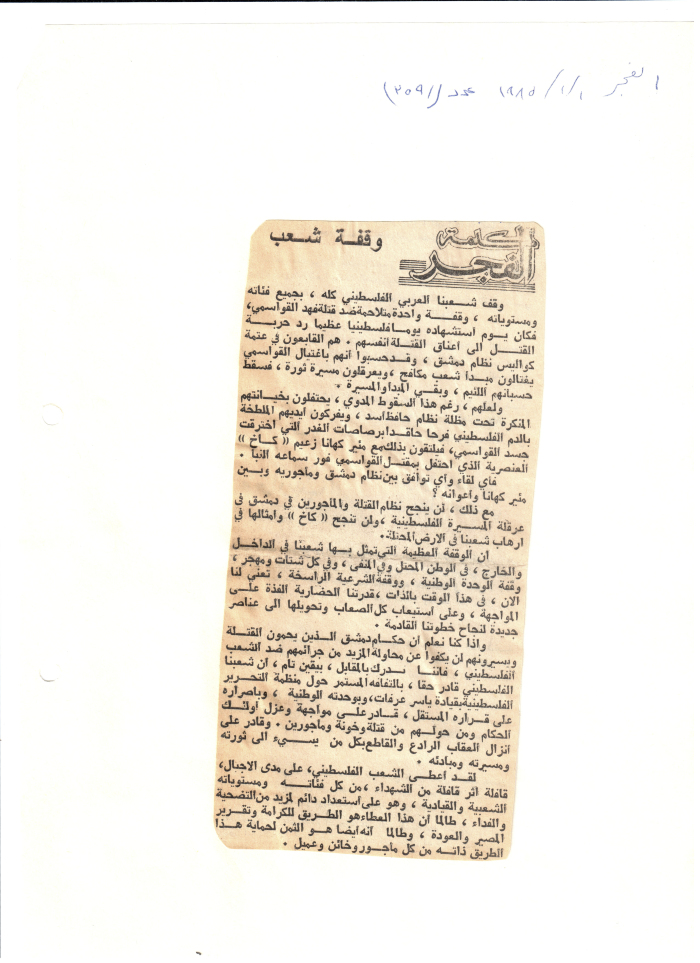 الفجر ١/١/١٩٨٥ عدد (٢٥٩١)
كلمة الفجر
وقفة شعب
وقف شعبنا العربي الفلسطيني كله ، بجميع فئاته
ومستوياته ، وقفة واحدة متلاحمة ضد قتلة فهد القواسمي،
فكان يوم استشهاده يوما فلسطينيا عظيما رد حربة
القتل الى اعناق القتلة انفسهم . هم القابعون في عتمة
كواليس نظام دمشق ، وقد حسبوا انهم باغتيال القواسمي
يغتالون مبدأ شعب مكافح ، ويعرقلون مسيرة ثورة ، فسقط
حسبانهم اللئيم ، وبقي المبدأ والمسيرة .
ولعلهم ، رغم هذا السقوط المدوي ، يحتفلون بخيانتهم
المنكرة تحت مظلة نظام حافظ اسد ، ويفركون ايديهم الملطخة
بالدم الفلسطيني فرحا حاقدا برصاصات الغدر التي اخترقت
جسد القواسمي، فيلتقون بذلك مع مئير كهانا زعيم « كاخ »
العنصرية الذي احتفل بمقتل القواسمي فور سماعه النبأ .
فاي لقاء واي توافق بين نظام دمشق وماجوريه وبين
مئير كهانا واعوانه ؟
مع ذلك ، لن ينجح نظام القتلة والماجورين في دمشق في
عرقلة المسيرة الفلسطينية ، ولن تنجح « كاخ » وامثالها في
ارهاب شعبنا في الارض المحتلة .
ان الوقفة العظيمة التي تمثل بها شعبنا في الداخل
والخارج ، في الوطن المحتل وفي المنفى ، وفي كل شتات ومهجر ،
وقفة الوحدة الوطنية ، ووقفة الشرعية الراسخة ، تعني لنا
الان ، في هذا الوقت بالذات ، قدرتنا الحضارية الفذة على
المواجهة ، وعلى استيعاب كل الصعاب وتحويلها الى عناصر
جديدة لنجاح خطوتنا القادمة .
واذا كنا نعلم ان حكام دمشق الذين يحمون القتلة
ويسيرونهم لن يكفوا عن محاولة المزيد من جرائمهم ضد الشعب
الفلسطيني ، فاننا ندرك بالمقابل ، بيقين تام ، ان شعبنا
الفلسطيني قادر حقا ، بالتفافه المستمر حول منظمة التحرير
الفلسطينية بقيادة ياسر عرفات، وبوحدته الوطنية ، وباصراره
على قراره المستقل ، قادر على مواجهة وعزل اولئك
الحكام ومن حولهم من قتلة وخونة وماجورين . وقادر على
انزال العقاب الرادع والقاطع بكل من يسيء الى ثورته
ومسيرته ومبادئه .
لقد اعطى الشعب الفلسطيني، على مدى الاجيال،
قافلة اثر قافلة من الشهداء ، من كل فئاته ومستوياته
الشعبية والقيادية ، وهو على استعداد دائم لمزيد من التضحية
والفداء ، طالما ان هذا العطاء هو الطريق للكرامة وتقرير
المصير والعودة ، وطالما انه ايضا هو الثمن لحماية هذا
الطريق ذاته من كل ماجور وخائن وعميل .